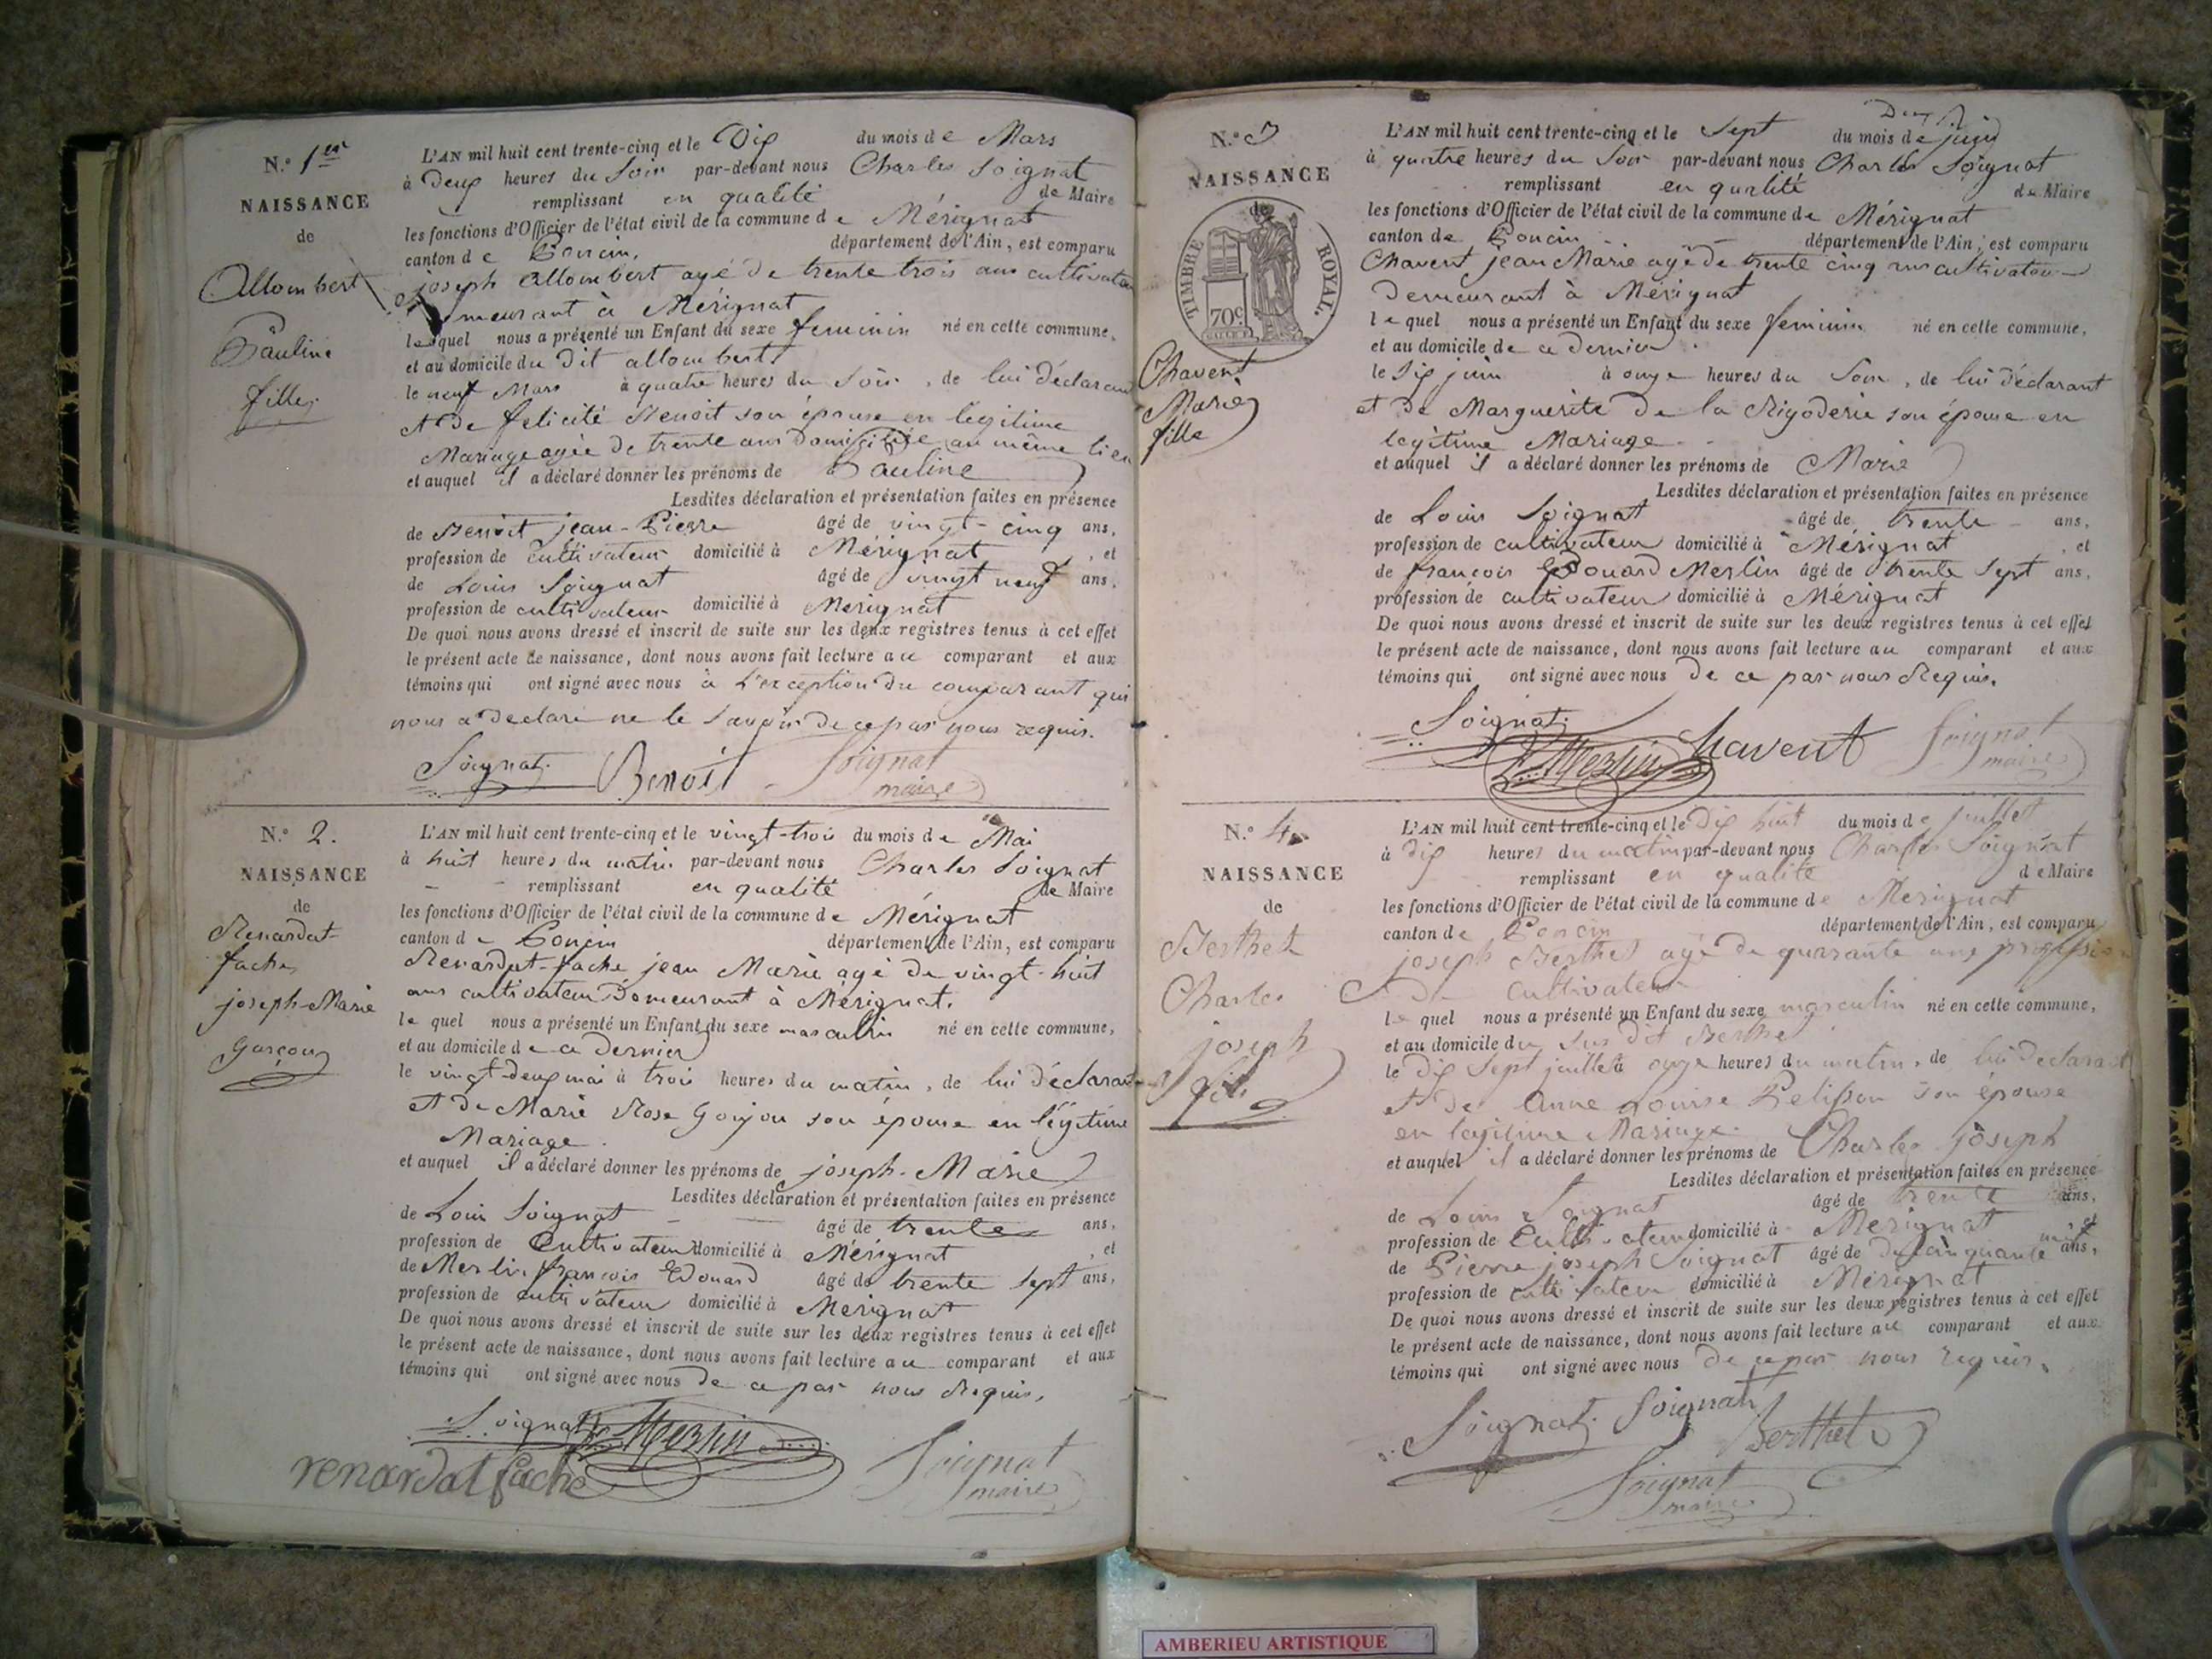 N.º 1er
NAISSANCE
de
Allombert
Pauline
fille.
L'AN mil huit cent trente-cinq et le Dix du mois de Mars
à Deux heures du Soir par-devant nous Charles Soignat
remplissant en qualité de Maire
les fonctions d'Officier de l'état civil de la commune de Mérignat
canton de Poncin, département de l'Ain, est comparu
joseph allombert agé de trente trois ans cultivateur
demeurant à Mérignat
lequel nous a présenté un Enfant du sexe feminin né en cette commune,
et au domicile du dit allombert
le neuf Mars à quatre heures du Soir, de lui déclarant
et de felicité Benoit son épouse en legitime
Mariage agée de trente ans domiciliée au même lieu
et auquel il a déclaré donner les prénoms de Pauline
Lesdites déclaration et présentation faites en présence
de Benoit jean-Pierre âgé de vingt-cinq ans,
profession de cultivateur domicilié à Mérignat, et
de Louis Soignat âgé de vingt neuf ans,
profession de cultivateur domicilié à Merignat
De quoi nous avons dressé et inscrit de suite sur les deux registres tenus à cet effet
le présent acte de naissance, dont nous avons fait lecture au comparant et aux
témoins qui ont signé avec nous à l'exception du comparant qui
nous a declaré ne le savoir de ce par nous requis.
Soignat Benoit Soignat
maire
N.º 2.
NAISSANCE
de
Renardat-
fache
joseph-Marie
Garçon
L'AN mil huit cent trente-cinq et le vingt-trois du mois de Mai
à huit heures du matin par-devant nous Charles Soignat
remplissant en qualité de Maire
les fonctions d'Officier de l'état civil de la commune de Mérignat
canton de Poncin département de l'Ain, est comparu
Renardat-fache jean Marie agé de vingt-huit
ans cultivateur demeurant à Mérignat.
lequel nous a présenté un Enfant du sexe masculin né en cette commune,
et au domicile de ce dernier
le vingt-deux mai à trois heures du matin, de lui déclarant
et de Marie Rose Goujou son épouse en légitime
Mariage.
et auquel il a déclaré donner les prénoms de joseph-Marie
Lesdites déclaration et présentation faites en présence
de Louis Soignat âgé de trente ans,
profession de Cultivateur domicilié à Mérignat, et
de Merlin françois Edouard âgé de trente sept ans,
profession de cultivateur domicilié à Merignat
De quoi nous avons dressé et inscrit de suite sur les deux registres tenus à cet effet
le présent acte de naissance, dont nous avons fait lecture au comparant et aux
témoins qui ont signé avec nous de ce par nous Requis.
Soignat Merlin
renardat fache Soignat
maire
N.º 3
NAISSANCE
de
TIMBRE ROYAL.
70c
Chavent
Marie
fille
L'AN mil huit cent trente-cinq et le Sept du mois de juin
à quatre heures du Soir par-devant nous Charles Soignat
remplissant en qualité de Maire
les fonctions d'Officier de l'état civil de la commune de Mérignat
canton de Poncin département de l'Ain, est comparu
Chavent jean Marie agé de trente cinq ans cultivateur
demeurant à Mérignat
lequel nous a présenté un Enfant du sexe feminin né en cette commune,
et au domicile de ce dernier.
le Six juin à onze heures du Soir, de lui déclarant
et de Marguerite de la Rigoderie son épouse en
legitime Mariage
et auquel il a déclaré donner les prénoms de Marie
Lesdites déclaration et présentation faites en présence
de Louis Soignat âgé de trente ans,
profession de cultivateur domicilié à Mérignat, et
de françois Edouard Merlin âgé de trente Sept ans,
profession de cultivateur domicilié à Mérignat
De quoi nous avons dressé et inscrit de suite sur les deux registres tenus à cet effet
le présent acte de naissance, dont nous avons fait lecture au comparant et aux
témoins qui ont signé avec nous de ce par nous Requis.
Soignat
Merlin Chavent Soignat
maire
N.º 4
NAISSANCE
de
Berthet
Charles
joseph
fils
L'AN mil huit cent trente-cinq et le Dix huit du mois de juillet
à dix heures du matin par-devant nous Charles Soignat
remplissant en qualité de Maire
les fonctions d'Officier de l'état civil de la commune de Merignat
canton de Poncin département de l'Ain, est comparu
joseph Berthet agé de quarante ans profession
de Cultivateur
lequel nous a présenté un Enfant du sexe masculin né en cette commune,
et au domicile du sus dit Berthet
le dix Sept juillet à onze heures du matin, de lui declarant
et de Anne Louise Pelisson son épouse
en legitime Mariage.
et auquel il a déclaré donner les prénoms de Charles joseph
Lesdites déclaration et présentation faites en présence
de Louis Soignat âgé de trente ans,
profession de Cultivateur domicilié à Merignat, et
de Pierre joseph Soignat âgé de cinquante ans,
profession de cultivateur domicilié à Mérignat
De quoi nous avons dressé et inscrit de suite sur les deux registres tenus à cet effet
le présent acte de naissance, dont nous avons fait lecture au comparant et aux
témoins qui ont signé avec nous de ce par nous requis.
Soignat. Soignat
Berthet
Soignat
maire
AMBERIEU ARTISTIQUE